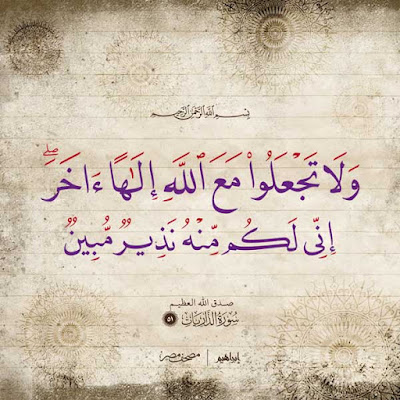 بِسْمِ اللَّهِ الرَّحْمَٰنِ الرَّحِيمِ
وَلَا تَجْعَلُوا۟ مَعَ ٱللَّهِ إِلَٰهًا ءَاخَرَ ۖ
إِنِّى لَكُم مِّنْهُ نَذِيرٌ مُّبِينٌ
صدق الله العظيم
سُورَةُ الذَّارِيَاتِ ٥١
إبراهيم | مصحف مصر